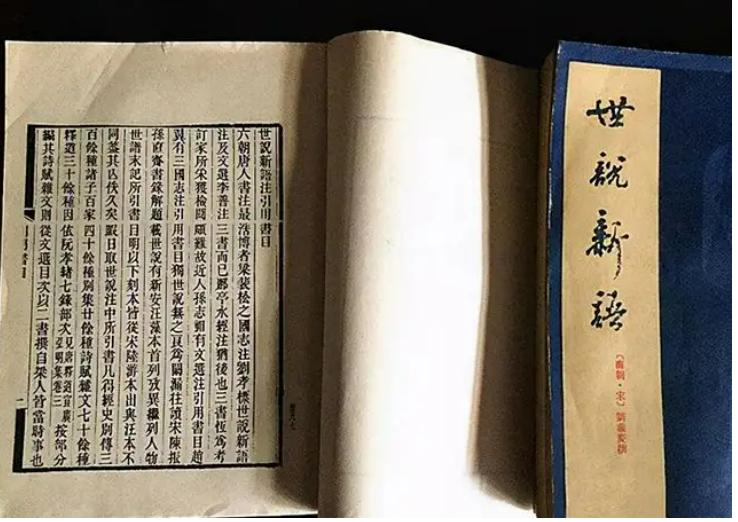 世說新語注引用書目
六朝唐人書注最浩博者梁裴松之國志注劉孝標世說新語
注及文選李善注三書而已酈亭水經注猶後也三書恆為考
訂家所采獲檢閱頗難故近人孫志輯有文選注引用書目趙
翼有三國志注引用書目獨世說無之頁為闕漏往讀宋陳振
孫直齋書錄解題載世說有新安汪藻本首列攷異繼列人物
世譜末記所引書目明以下刻本皆從宋陸游本出與汪本不
同蓋其亾佚久矣暇日取世說注中所引書凡得經史別傳三
百餘種諸子百家四十餘種別集廿餘種詩賦雜文七十餘種
釋道三十餘種因依阮孝緒七錄部次見唐釋道宣廣弘明集卷三按部分
編其詩賦雜文則從文選目次以二書撰自梁人皆當時事也
一
世說新語
〔南朝・宋〕劉義慶撰